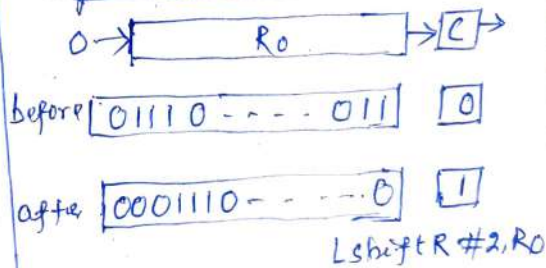 0 → R0 → C →
before 01110 - - - - 011 0
after 0001110 - - - - - 0 1
LshiftR #2, R0